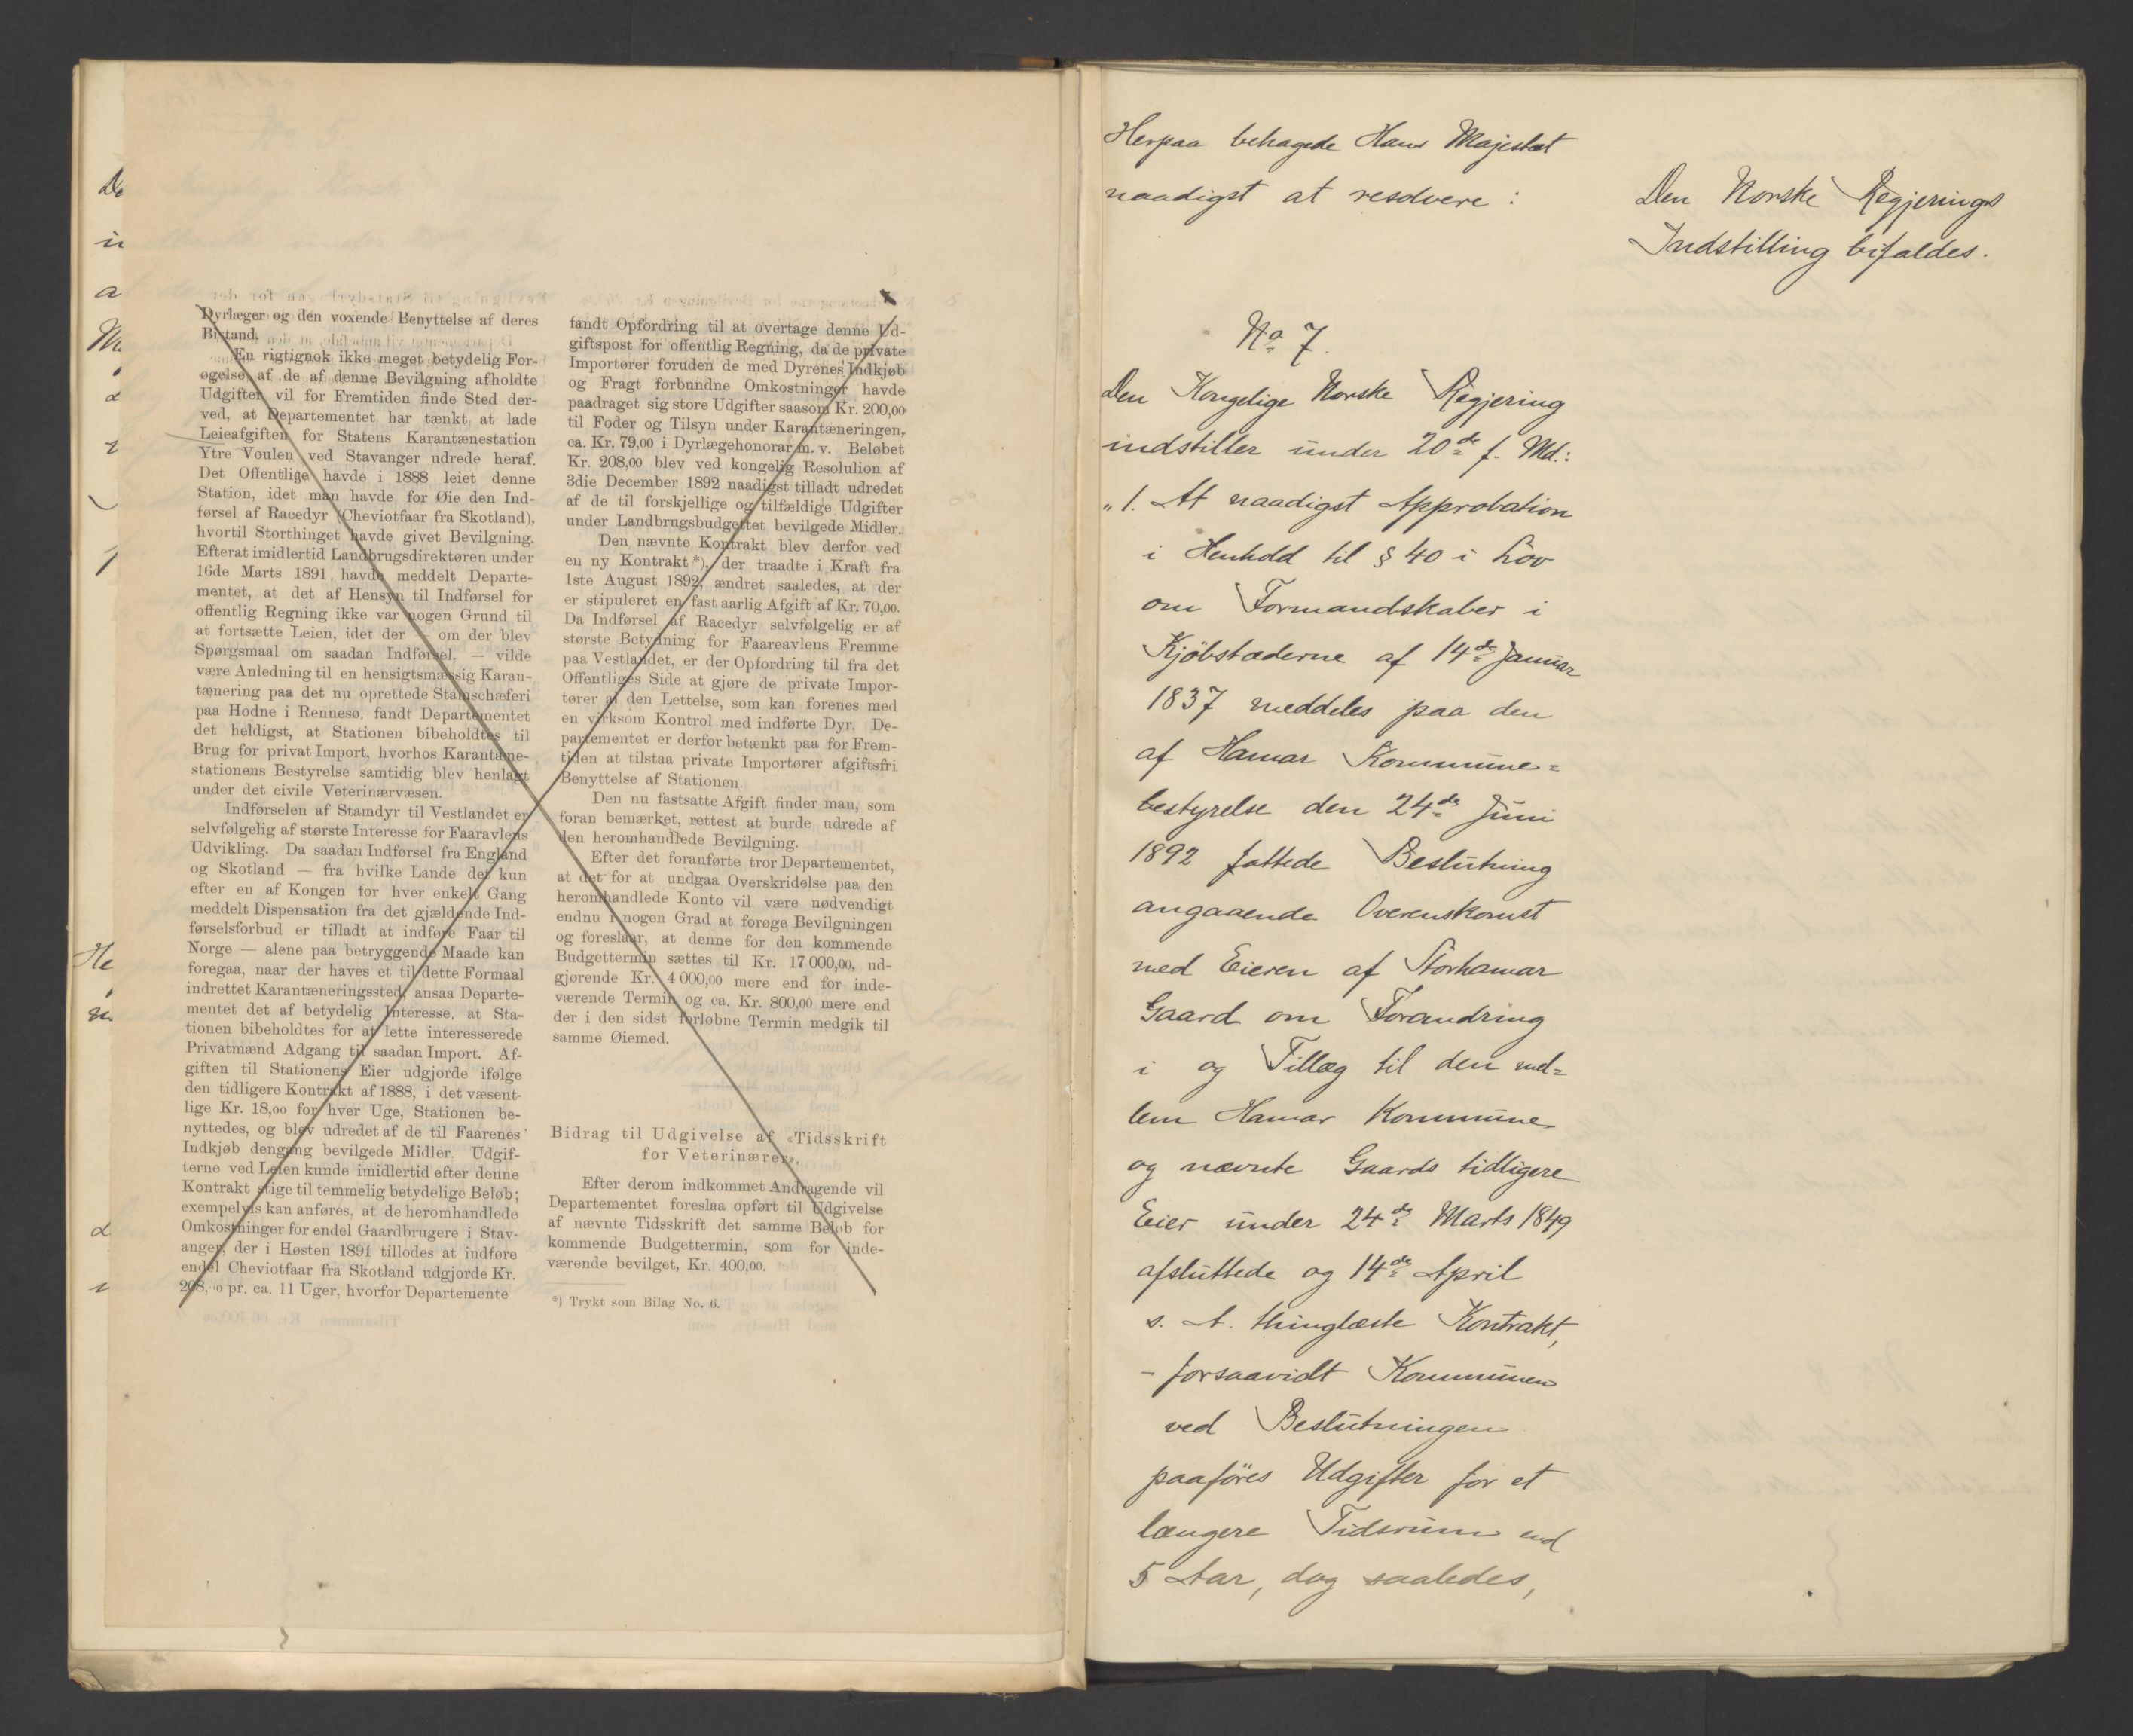 Dyrlæger og den voxende Benyttelse af deres
Bistand.
En rigtignok ikke meget betydelig For-
øgelse af de af denne Bevilgning afholdte
Udgifter vil for Fremtiden finde Sted der-
ved, at Departementet har tænkt at lade
Leieafgiften for Statens Karantænestation
Ytre Voulen ved Stavanger udrede heraf.
Det Offentlige havde i 1888 leiet denne
Station, idet man havde for Øie den Ind-
førsel af Racedyr (Cheviotfaar fra Skotland),
hvortil Storthinget havde givet Bevilgning.
Efterat imidlertid Landbrugsdirektøren under
16de Marts 1891 havde meddelt Departe-
mentet, at det af Hensyn til Indførsel for
offentlig Regning ikke var nogen Grund til
at fortsætte Leien, idet der — om der blev
Spørgsmaal om saadan Indførsel, — vilde
være Anledning til en hensigtsmæssig Karan-
tænering paa det nu oprettede Stamschæferi
paa Hodne i Rennesø, fandt Departementet
det heldigst, at Stationen bibeholdtes til
Brug for privat Import, hvorhos Karantæne-
stationens Bestyrelse samtidig blev henlagt
under det civile Veterinærvæsen.
Indførselen af Stamdyr til Vestlandet er
selvfølgelig af største Interesse for Faaravlens
Udvikling. Da saadan Indførsel fra England
og Skotland — fra hvilke Lande det kun
efter en af Kongen for hver enkelt Gang
meddelt Dispensation fra det gjældende Ind-
førselsforbud er tilladt at indføre Faar til
Norge — alene paa betryggende Maade kan
foregaa, naar der haves et til dette Formaal
indrettet Karantæneringssted, ansaa Departe-
mentet det af betydelig Interesse, at Sta-
tionen bibeholdtes for at lette interesserede
Privatmænd Adgang til saadan Import. Af-
giften til Stationens Eier udgjorde ifølge
den tidligere Kontrakt af 1888, i det væsent-
lige Kr. 18,00 for hver Uge, Stationen be-
nyttedes, og blev udredet af de til Faarenes
Indkjøb dengang bevilgede Midler. Udgif-
terne ved Leien kunde imidlertid efter denne
Kontrakt stige til temmelig betydelige Beløb;
exempelvis kan anføres, at de heromhandlede
Omkostninger for endel Gaardbrugere i Stav-
anger, der i Høsten 1891 tillodes at indføre
endel Cheviotfaar fra Skotland udgjorde Kr.
208,00 pr. ca. 11 Uger, hvorfor Departemente
fandt Opfordring til at overtage denne Ud-
giftspost for offentlig Regning, da de private
Importører foruden de med Dyrenes Indkjøb
og Fragt forbundne Omkostninger havde
paadraget sig store Udgifter saasom Kr. 200,00
til Foder og Tilsyn under Karantæneringen,
ca. Kr. 79,00 i Dyrlægehonorar m. v. Beløbet
Kr. 208,00 blev ved kongelig Resolulion af
3die December 1892 naadigst tilladt udredet
af de til forskjellige og tilfældige Udgifter
under Landbrugsbudgettet bevilgede Midler.
Den nævnte Kontrakt blev derfor ved
en ny Kontrakt *), der traadte i Kraft fra
1ste August 1892, ændret saaledes, at der
er stipuleret en fast aarlig Afgift af Kr. 70,00.
Da Indførsel af Racedyr selvfølgelig er af
største Betydning for Faareavlens Fremme
paa Vestlandet, er der Opfordring til fra det
Offentliges Side at gjøre de private Impor-
tører al den Lettelse, som kan forenes med
en virksom Kontrol med indførte Dyr. De-
partementet er derfor betænkt paa for Frem-
tiden at tilstaa private Importører afgiftsfri
Benyttelse af Stationen
Den nu fastsatte Afgift finder man, som
foran bemærket, rettest at burde udrede af
den heromhandlede Bevilgning.
Efter det foranførte tror Departementet,
at det for at undgaa Overskridelse paa den
heromhandlede Konto vil være nødvendigt
endnu i nogen Grad at forøge Bevilgningen
og foreslaar, at denne for den kommende
Budgettermin sættes til Kr. 17 000,00, ud-
gjørende Kr. 4 000,00 mere end for inde-
værende Termin og ca. Kr. 800,00 mere end
der i den sidst forløbne Termin medgik til
samme Øiemed.
Bidrag til Udgivelse af «Tidsskrift
for Veterinærer».
Efter derom indkommet Andragende vil
Departementet foreslaa opført til Udgivelse
af nævnte Tidsskrift det samme Beløb for
kommende Budgettermin, som for inde-
værende bevilget, Kr. 400,00.
*) Trykt som Bilag No. 6.
Herpaa behagede Hans Majestæt
naadigst at resolvere :
Den Norske Regjerings
Indstilling bifaldes.
No 7.
Den Kongelige Norske Regjering
indstiller under 20de f. Md.:
"1. At naadigst Approbation
i Henhold til § 40 i Lov
om Formandskaber i
Kjöbstæderne af 14de Januar
1837 meddeles paa den
af Hamar Kommune=
bestyrelse den 24de Juni
1892 fattede Beslutning
angaaende Overenskomst
med Eieren af Storhamar
Gaard om Forandring
i og Tillæg til den mel=
lem Hamar Kommune
og nævnte Gaards tidligere
Eier under 24de Marts 1849
afsluttede og 14de April
s. A. thinglæste Kontrakt,
- forsaavidt Kommunen
ved Beslutningen
paaföres Udgifter for et
længere Tidsrum end
5 Aar, dog saaledes,